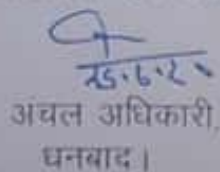 25.6.2
अंचल अधिकारी,
धनबाद।